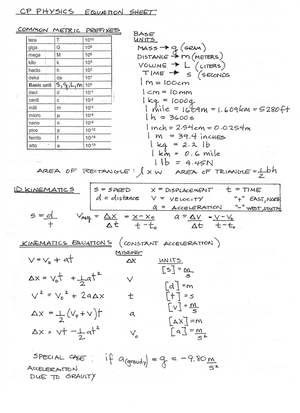 CP PHYSICS EQUATION SHEET
COMMON METRIC PREFIXES
tera T 10¹²
giga G 10⁹
mega M 10⁶
kilo k 10³
hecto h 10²
deka da 10¹
Basic unit s, g, L, m 10⁰
deci d 10⁻¹
centi c 10⁻²
milli m 10⁻³
micro μ 10⁻⁶
nano n 10⁻⁹
pico p 10⁻¹²
femto f 10⁻¹⁵
atto a 10⁻¹⁸
BASE
UNITS
MASS → g (GRAM)
DISTANCE → m (METERS)
VOLUME → L (LITERS)
TIME → s (SECONDS
1 m = 100cm
1 cm = 10mm
1 kg = 1000g
1 mile = 1609m = 1.609km = 5280ft
1 h = 3600s
1 inch = 2.54cm = 0.0254m
1 m = 39.4 inches
1 kg = 2.2 lb
1 km = 0.6 mile
1 lb = 4.45N
AREA OF RECTANGLE: l x w AREA OF TRIANGLE = 1/2 bh
1D KINEMATICS
s = SPEED x = DISPLACEMENT t = TIME
d = distance v = VELOCITY "+" EAST, NORTH
a = ACCELERATION "-" WEST, SOUTH
s = d/t Vavg = Δx/Δt = x-x₀/t-t₀ a = Δv/Δt = v-v₀/t-t₀
KINEMATICS EQUATIONS (CONSTANT ACCELERATION)
MISSING
V = V₀ + at Δx
Δx = V₀t + 1/2 at² V
V² = V₀² + 2aΔx t
Δx = 1/2 (V₀+V)t a
Δx = Vt - 1/2 at² V₀
UNITS
[s] = m/s
[d] = m
[t] = s
[v] = m/s
[Δx] = m
[a] = m/s²
SPECIAL CASE: if a(gravity) = g = -9.80 m/s²
ACCELERATION
DUE TO GRAVITY